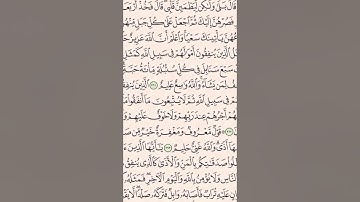 قَالَ بَلَىٰ وَلَٰكِن لِّيَطْمَئِنَّ قَلْبِي قَالَ فَخُذْ أَرْبَعَ
فَصُرْهُنَّ إِلَيْكَ ثُمَّ ٱجْعَلْ عَلَىٰ كُلِّ جَبَلٍ
عُهُنَّ يَأْتِينَكَ سَعْيًا وَٱعْلَمْ أَنَّ ٱللَّهَ عَزِيزٌ
لُ ٱلَّذِينَ يُنفِقُونَ أَمْوَٰلَهُمْ فِي سَبِيلِ ٱللَّهِ كَمَثَلِ
سَبْعَ سَنَابِلَ فِي كُلِّ سُنۢبُلَةٍ مِّا۟ئَةُ حَبَّةٍ
لِمَن يَشَآءُ وَٱللَّهُ وَٰسِعٌ عَلِيمٌ ٢٦١ ٱلَّذِينَ
فِي سَبِيلِ ٱللَّهِ ثُمَّ لَا يُتْبِعُونَ مَآ أَنفَقُوا۟
هُمْ أَجْرُهُمْ عِندَ رَبِّهِمْ وَلَا خَوْفٌ عَلَيْهِمْ وَ
٢٦٢ قَوْلٌ مَّعْرُوفٌ وَمَغْفِرَةٌ خَيْرٌ مِّن
وَٱللَّهُ غَنِيٌّ حَلِيمٌ ٢٦٣ يَٰٓأَيُّهَا ٱلَّذِينَ
لُوا۟ صَدَقَٰتِكُم بِٱلْمَنِّ وَٱلْأَذَىٰ كَٱلَّذِي
ٱلنَّاسِ وَلَا يُؤْمِنُ بِٱللَّهِ وَٱلْيَوْمِ ٱلْءَاخِرِ فَمَثَلُهُۥ
عَلَيْهِ تُرَابٌ فَأَصَابَهُۥ وَابِلٌ فَتَرَكَهُۥ صَلْدًا لَّا